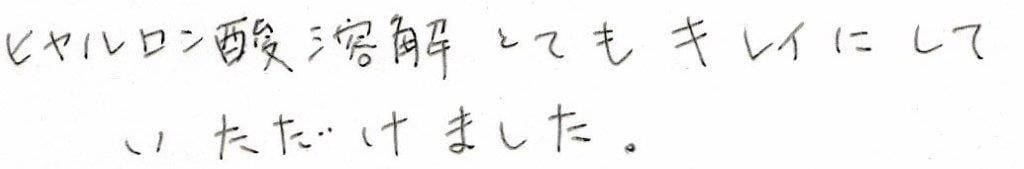 ヒヤルロン酸溶解 とても キレイにして
いただけました。